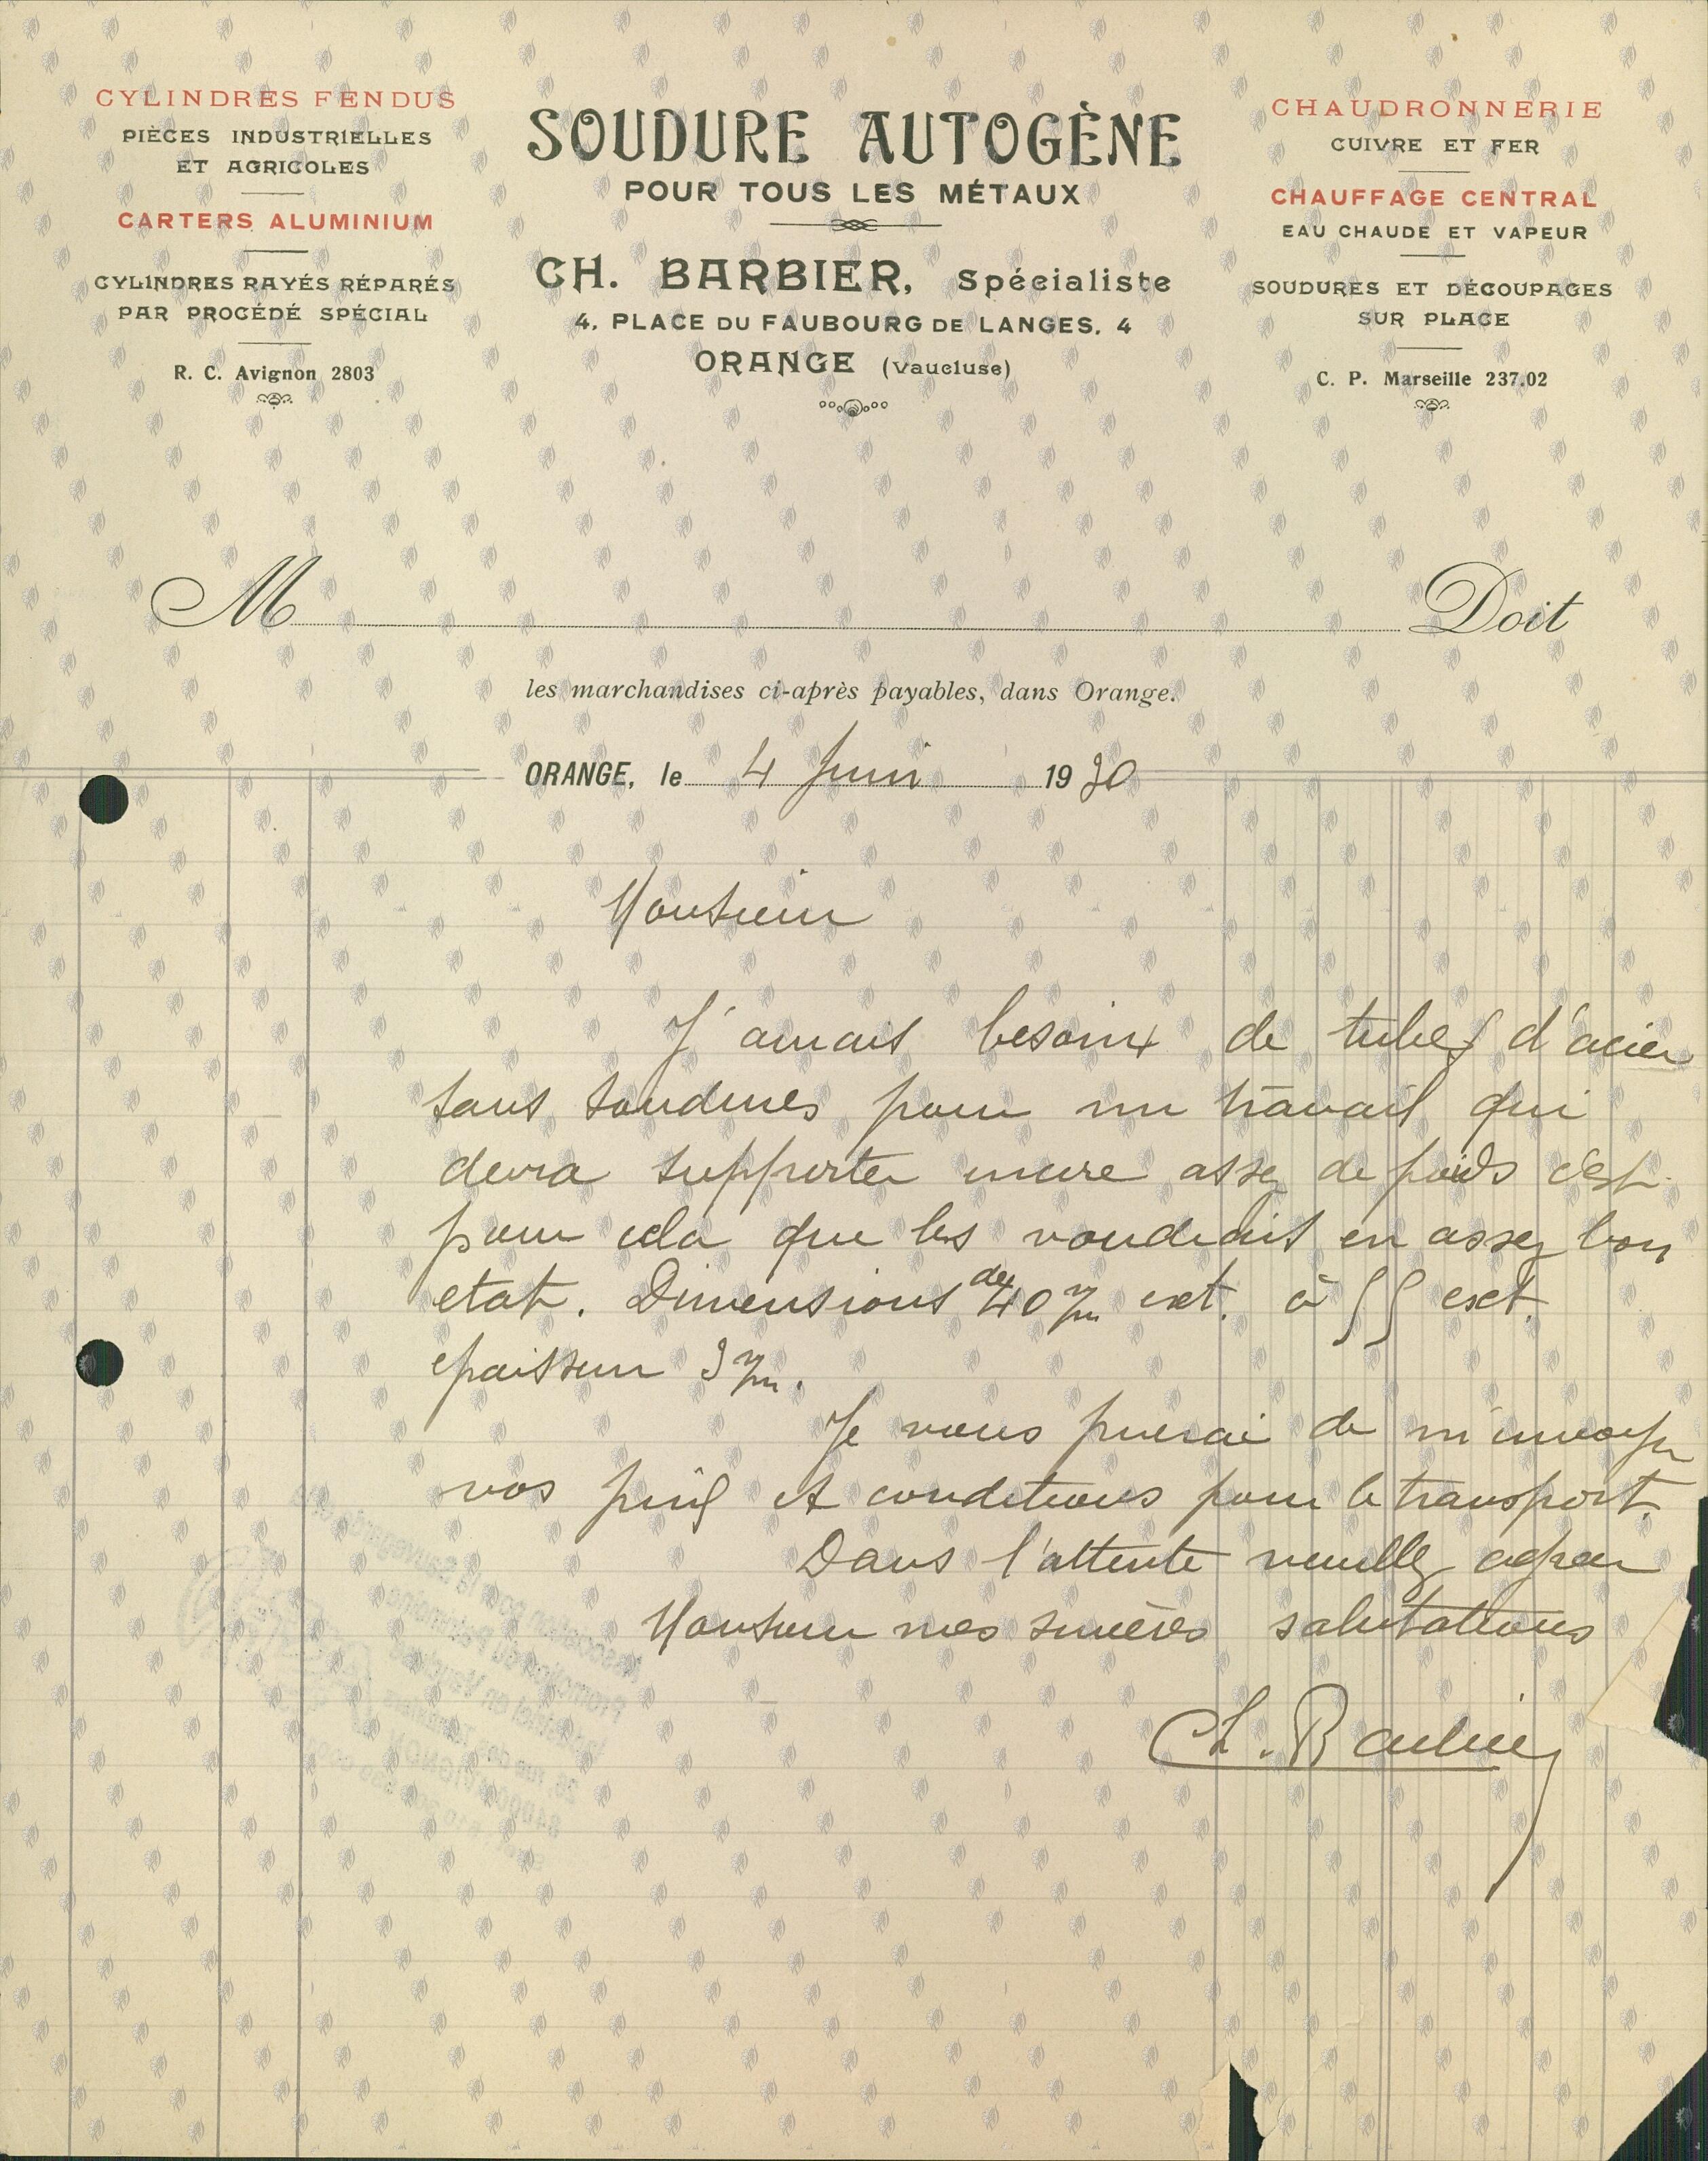 CYLINDRES FENDUS
PIÈCES INDUSTRIELLES
ET AGRICOLES
CARTERS ALUMINIUM
CYLINDRES RAYÉS RÉPARÉS
PAR PROCÉDÉ SPÉCIAL
R. C. Avignon 2803
SOUDURE AUTOGÈNE
POUR TOUS LES MÉTAUX
CH. BARBIER, Spécialiste
4, PLACE DU FAUBOURG DE LANGES, 4
ORANGE (Vaucluse)
CHAUDRONNERIE
CUIVRE ET FER
CHAUFFAGE CENTRAL
EAU CHAUDE ET VAPEUR
SOUDURES ET DÉCOUPAGES
SUR PLACE
C. P. Marseille 237.02
M Doit
les marchandises ci-après payables, dans Orange.
ORANGE, le 4 Juin 1930
Monsieur
J'aurais besoin de tubes d'acier
sans soudures pour un travail qui
devra supporter encore assez de poids c'est
pour cela que les voudrais en assez bon
etat. Dimensions de 40 m/m ext. à 55 ext.
epaisseur 3 m/m.
Je vous prierai de m'envoyer
vos prix et conditions pour le transport.
Dans l'attente veuillez agréer
Monsieur mes sincères salutations
Ch. Barbier
Association pour la Sauvegarde et
Promotion du Patrimoine
Industriel en Vaucluse
rue des Teinturiers
84000 AVIGNON